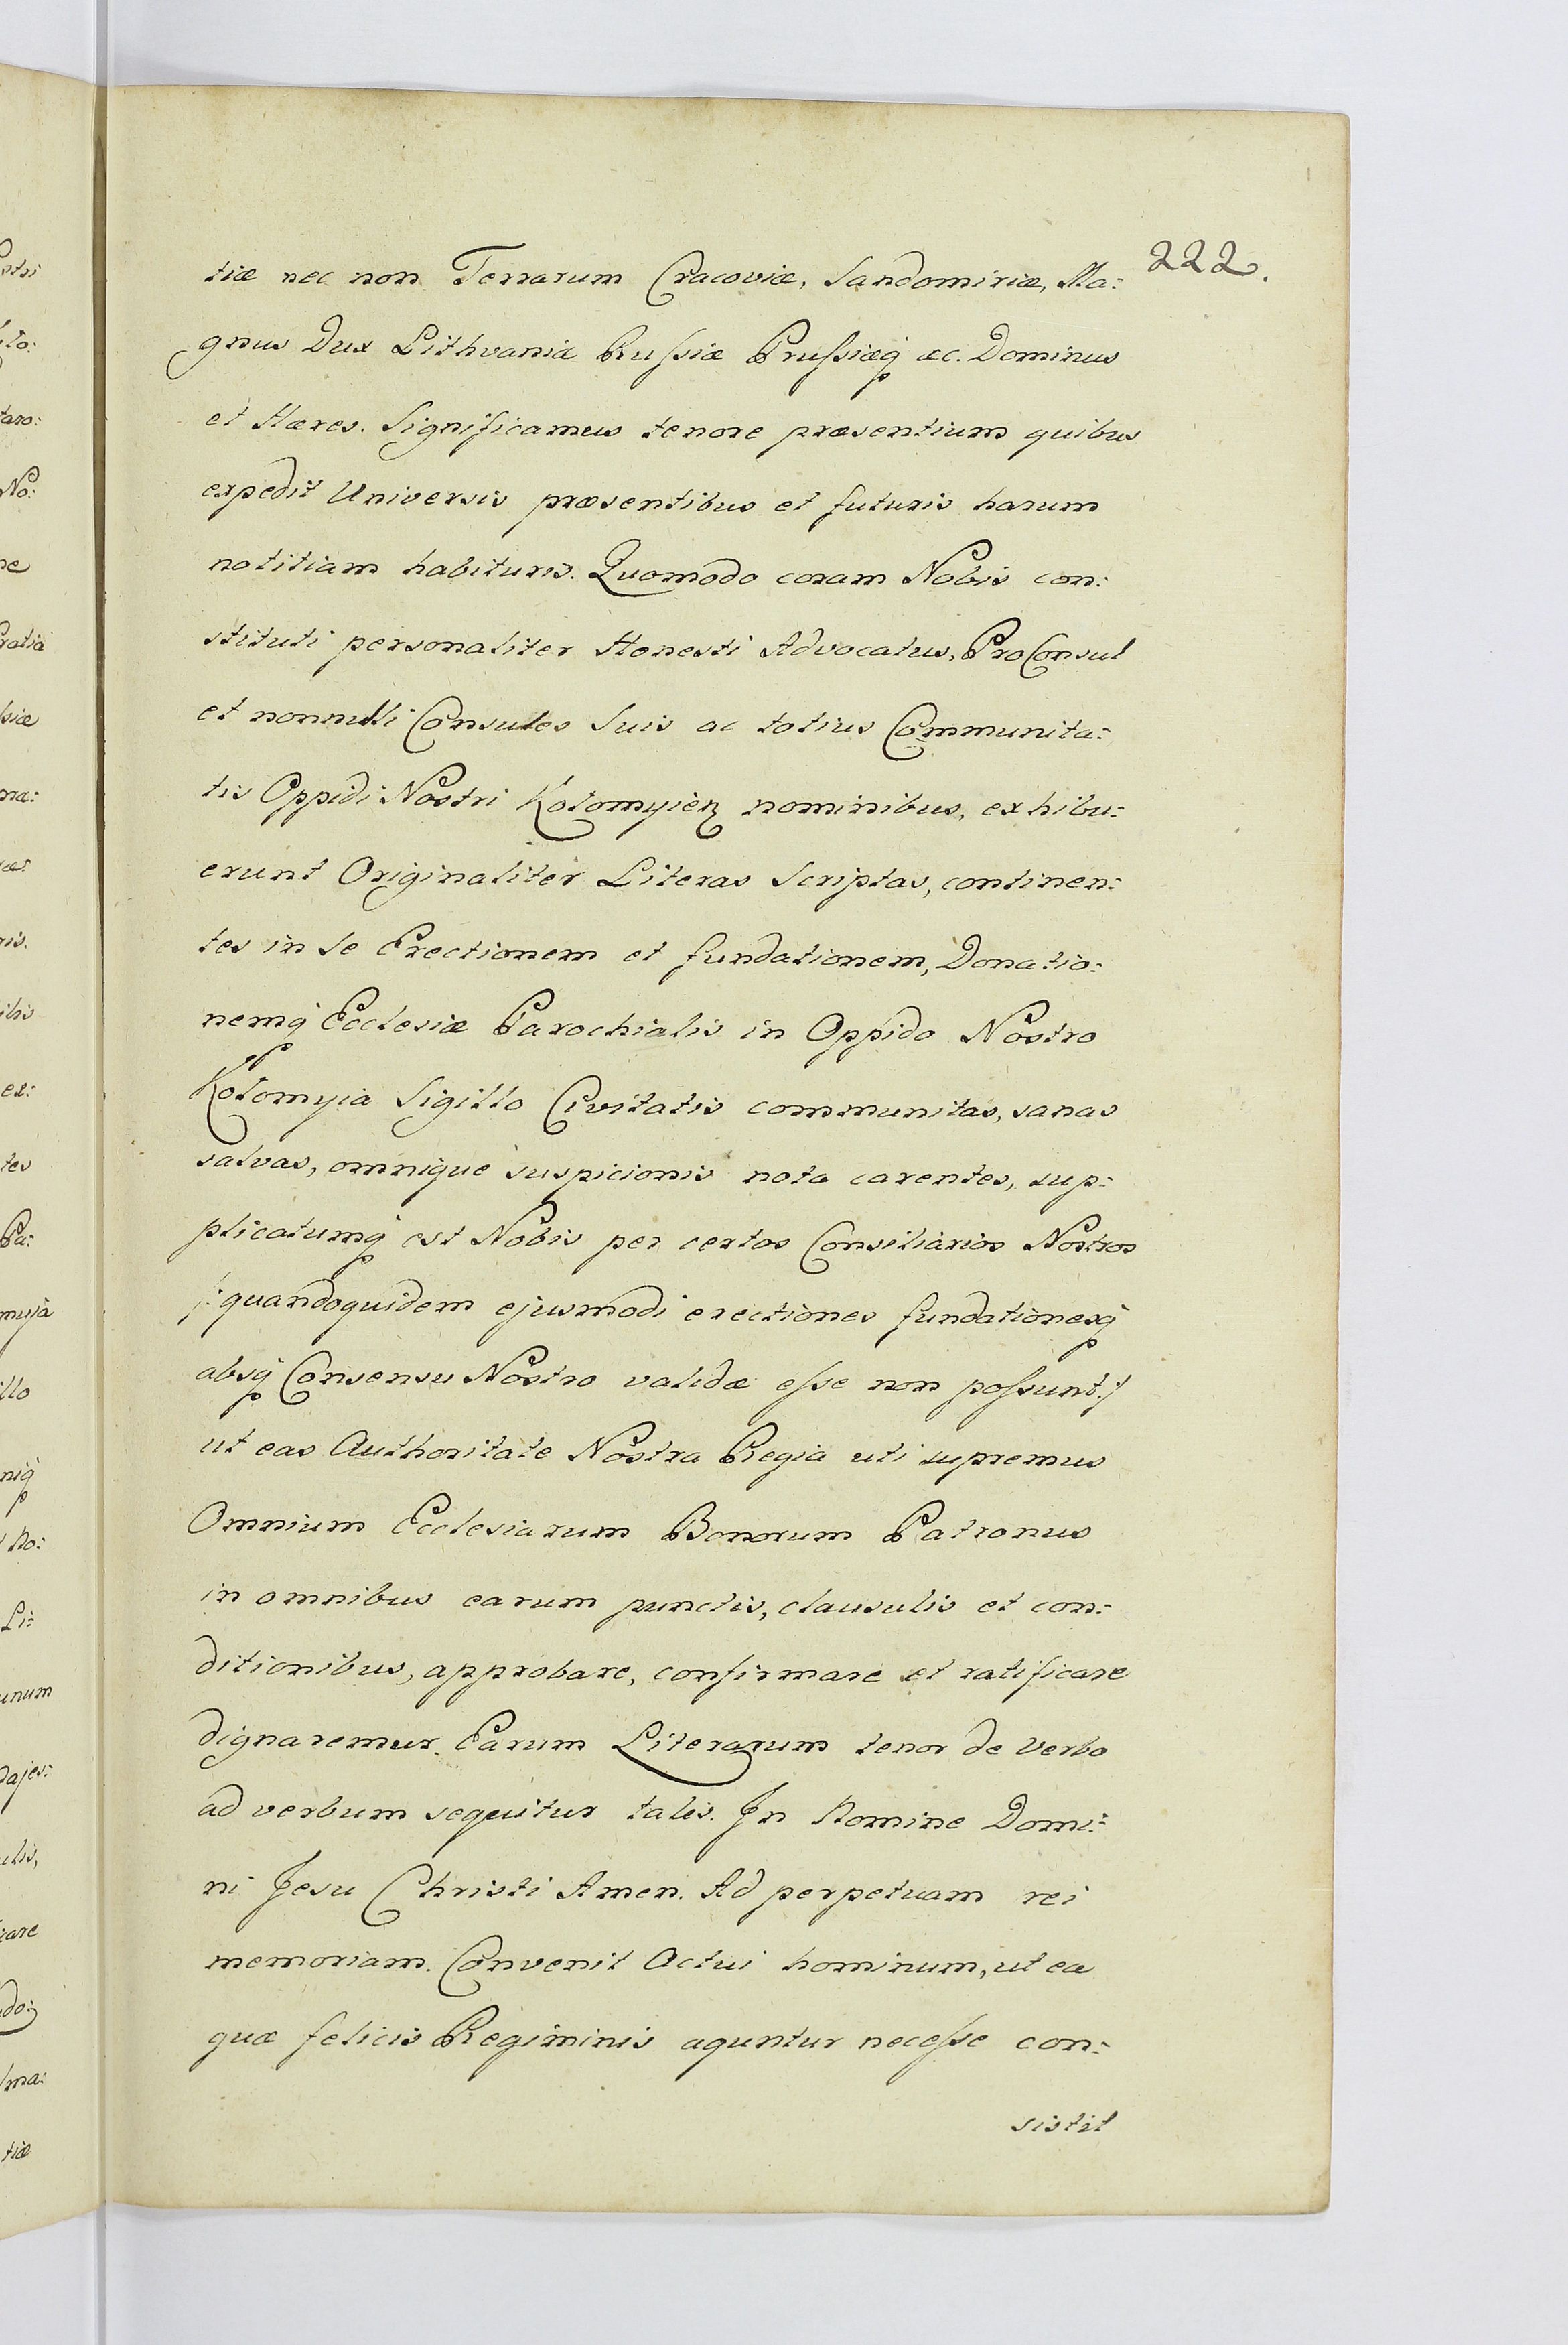 222.
tiæ nec non Terrarum Cracoviæ, Sandomiriæ, Ma:
gnus Dux Lithvaniæ Russiæ Prussiæq́ æc. Dominus
et Hæres. Significamus tenore præsentium quibus
expedit Universis præsentibus et futuris harum
notitiam habituris. Quomodo coram Nobis con:
stituti personaliter Honesti Advocatus, ProConsul
et nonnulli Consules Suis ac totius Communita:
tis Oppidi Nostri Kołomyien nominibus, exhibu:
erunt Originaliter Literas Scriptas, continen:
tes in Se Erectionem et fundationem, Donatio:
nemq́ Ecclesiæ Parochialis in Oppido Nostro
Kołomyia Sigillo Civitatis communitas, sanas
salvas, omnique suspicionis nota carentes, sup:
plicatumq́ est Nobis per certos Consiliarios Nostros
/: quandoquidem ejusmodi erectiones fundationesq́
absq́ Consensu Nostro validæ esse non possunt :/
ut eas Authoritate Nostra Regia uti supremus
Omnium Ecclesiarum Bonorum Patronus
in omnibus earum punctis, clausulis et con:
ditionibus, approbare, confirmare et ratificare
dignaremur. Earum Literarum tenor de verbo
ad verbum sequitur talis. In Nomine Domi:
ni Jesu Christi Amen. Ad perpetuam rei
memoriam. Convenit Actui hominum, ut ea
quæ felicis Regiminis aguntur necesse con:
sistit